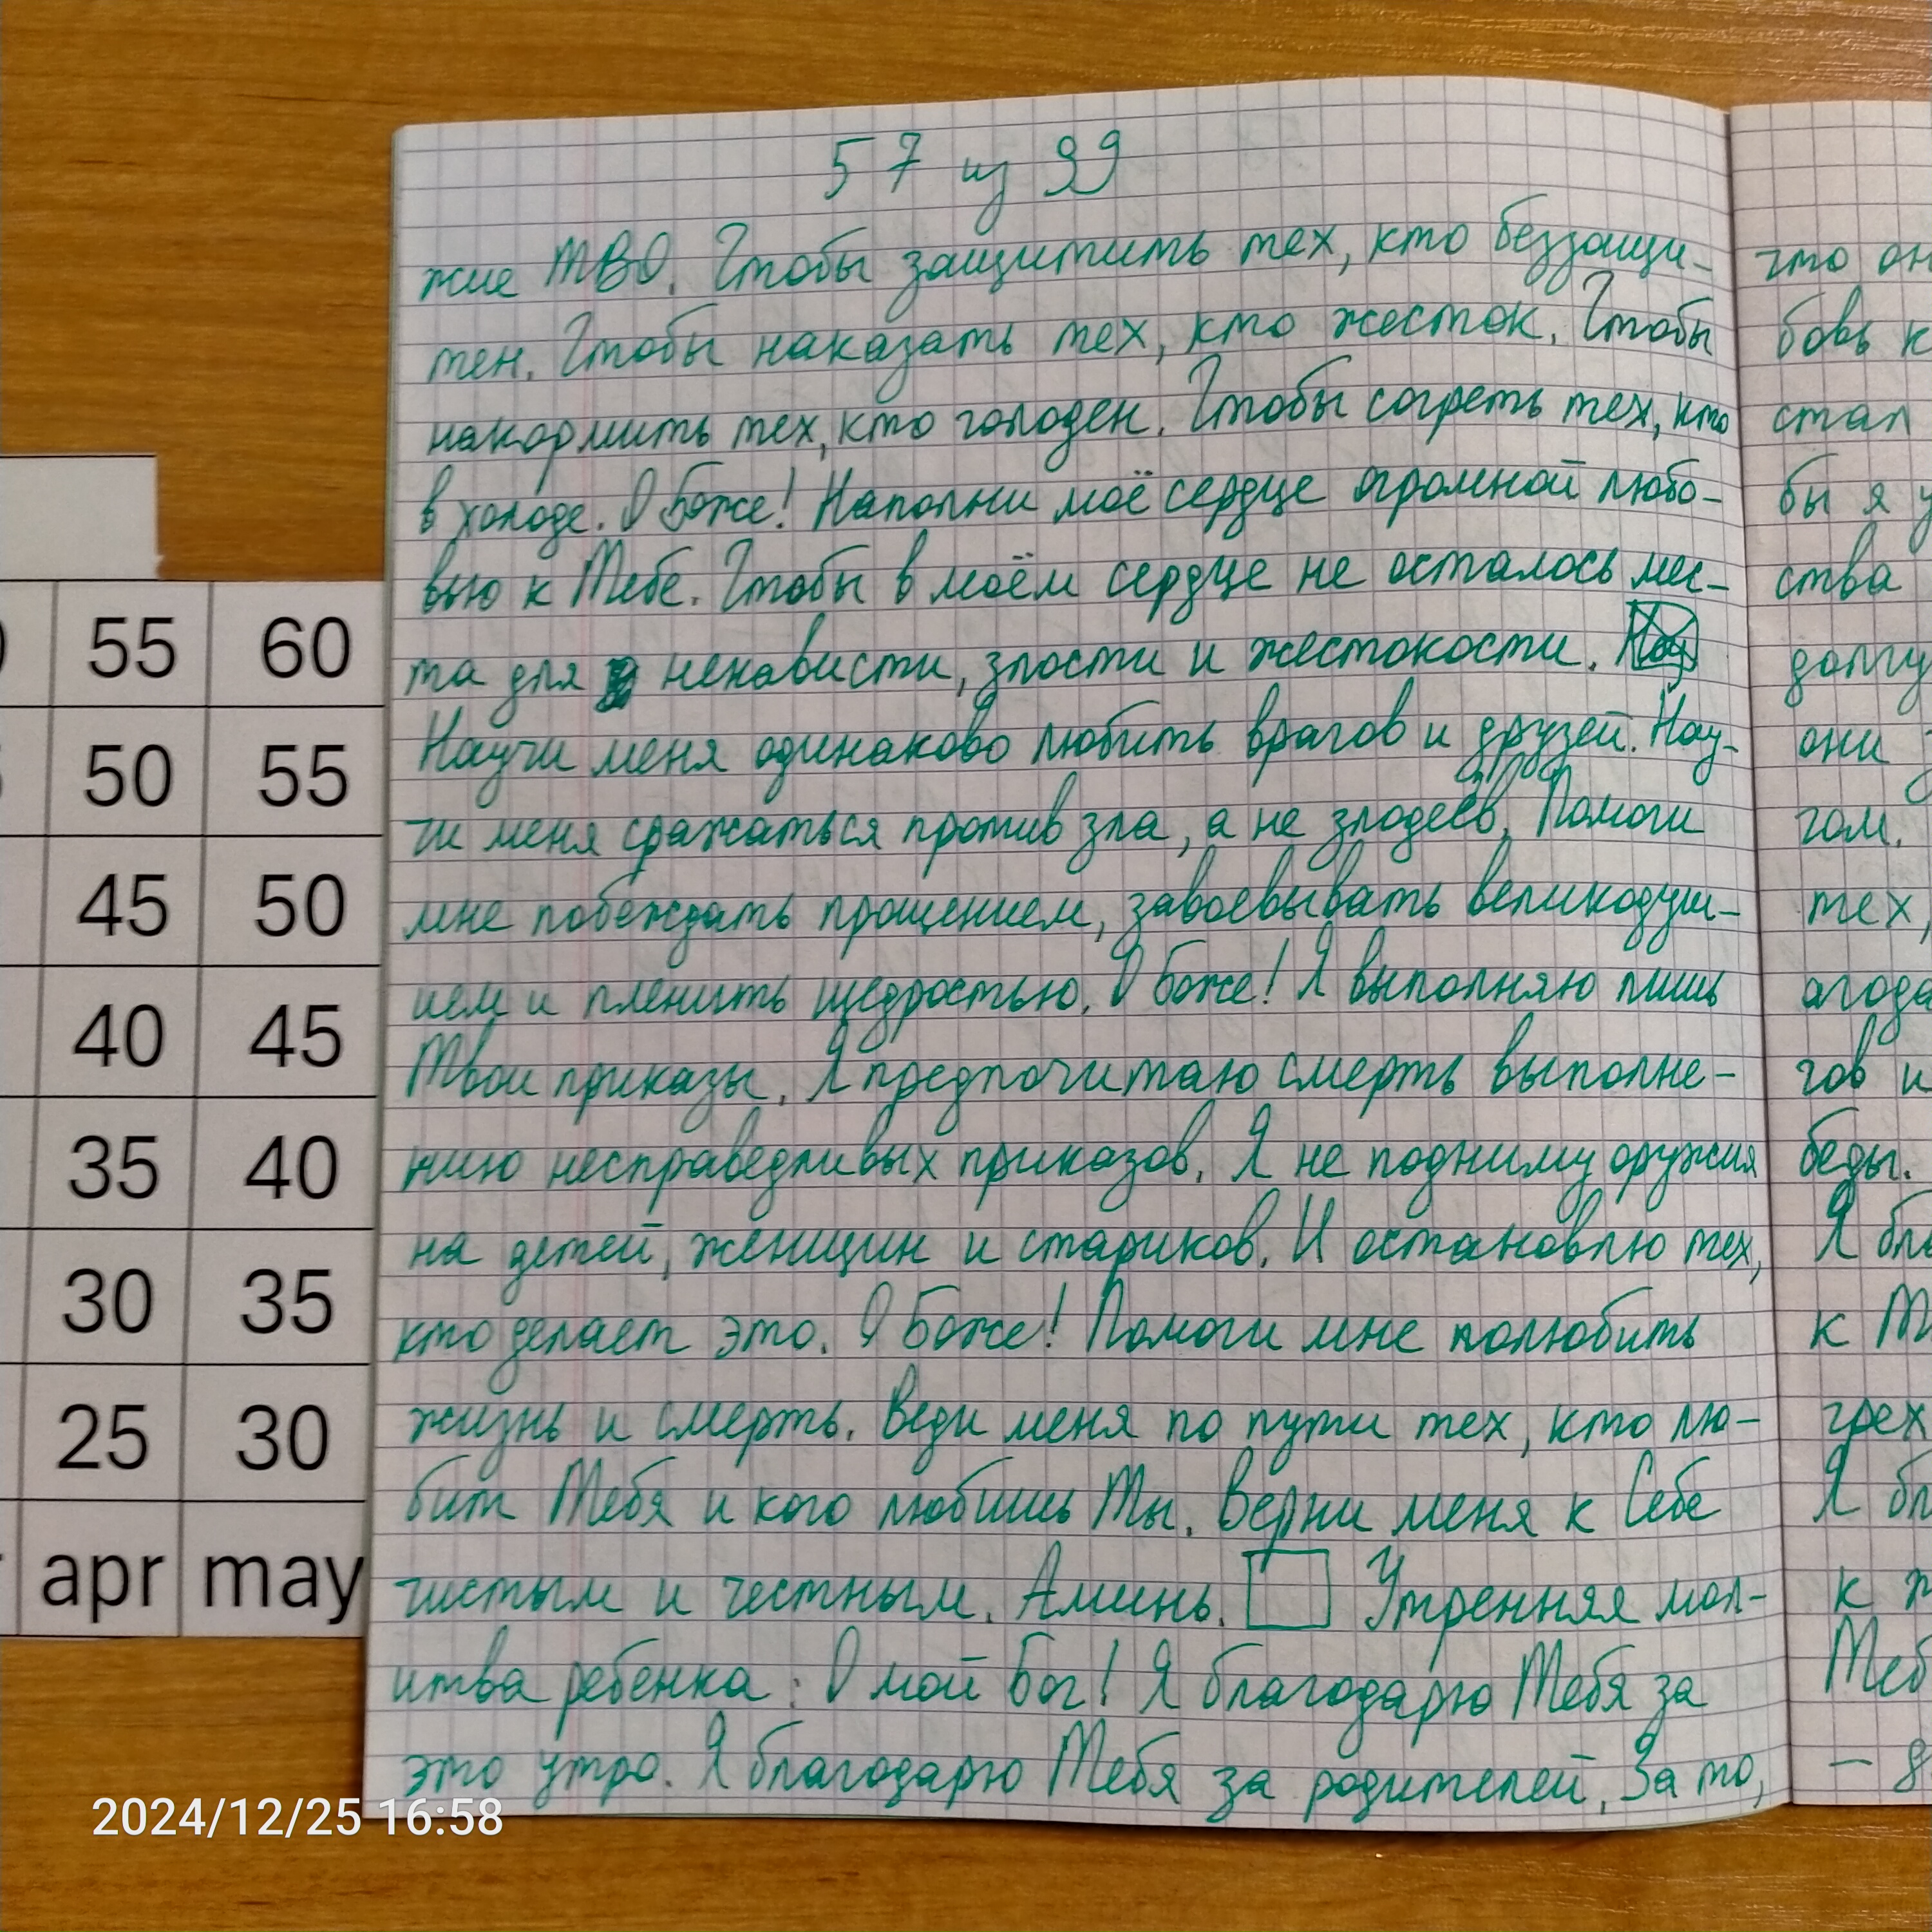 57 из 99
жие ТВО. Чтобы защитить тех, кто беззащи-
тен. Чтобы наказать тех, кто жесток. Чтобы
накормить тех, кто голоден. Чтобы согреть тех, кто
в холоде. О Боже! Наполни моё сердце огромной любо-
вью к Тебе. Чтобы в моём сердце не осталось мес-
та для ненависти, злости и жестокости.
Научи меня одинаково любить врагов и друзей. Нау-
чи меня сражаться против зла, а не злодеев. Помоги
мне побеждать прощением, завоевывать великодуш-
ием и пленить щедростью. О Боже! Я выполняю лишь
Твои приказы. Я предпочитаю смерть выполне-
нию несправедливых приказов. Я не подниму оружия
на детей, женщин и стариков. И остановлю тех,
кто делает это. О Боже! Помоги мне полюбить
жизнь и смерть. Веди меня по пути тех, кто лю-
бит Тебя и кого любишь Ты. Верни меня к Себе
чистым и честным. Аминь. Утренняя мол-
итва ребенка: О мой Бог! Я благодарю Тебя за
это утро. Я благодарю Тебя за родителей. За то,
что он
бовь к
стал
бы я у
ства
долгу
они
гом.
тех,
агода
гов и
беды.
Я бла
к Т
грех
Я бл
к
Теб
55 60
50 55
45 50
40 45
35 40
30 35
25 30
apr may
2024/12/25 16:58